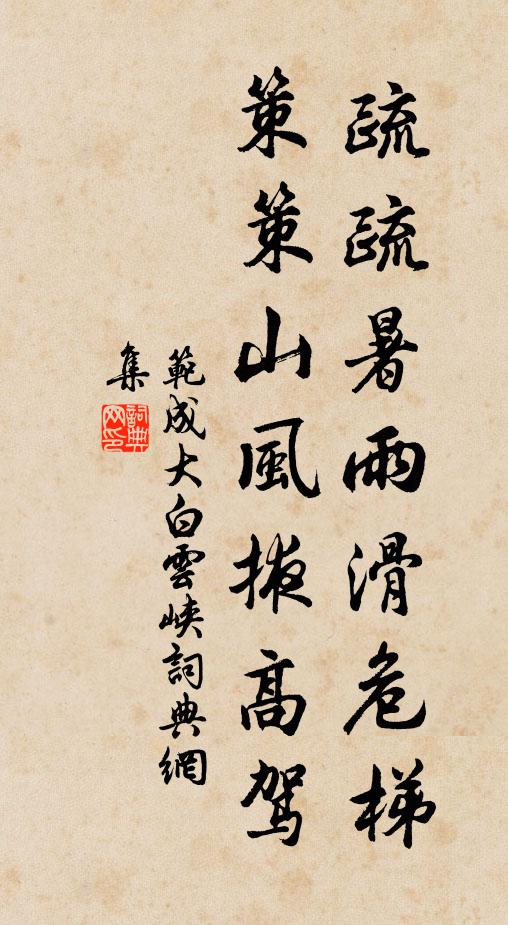 疏疏暑雨滑危梯
策策山風掖高駕
範成大白雲峽詞典網
集
詞典网印